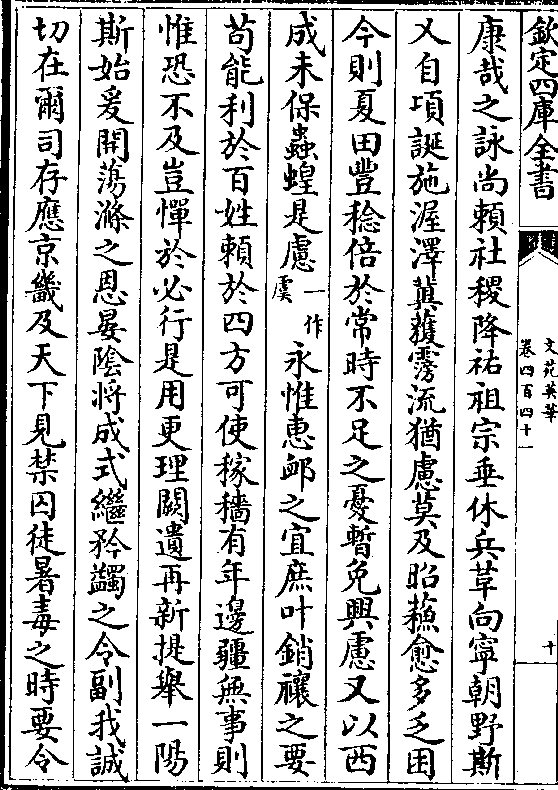 欽定四庫全書
文苑英華
卷四百四十一
十
康哉之詠尚賴社稷降祐祖宗垂休兵革向寧朝野斯
乂自項誕施渥澤冀獲霶流猶慮莫及昭蘓愈多乏困
今則夏田豐稔倍於常時不足之憂暫免興慮又以西
成未保蟲蝗是慮一作虞永惟惠䘏之宜庶叶銷禳之要
苟能利於百姓賴於四方可使稼穡有年邊疆無事則
惟恐不及豈憚於必行是用更理闕遺再新提舉一陽
斯始爰開蕩滌之恩晏陰將成式繼矜蠲之令副我誠
切在爾司存應京畿及天下見禁囚徒暑毒之時要令